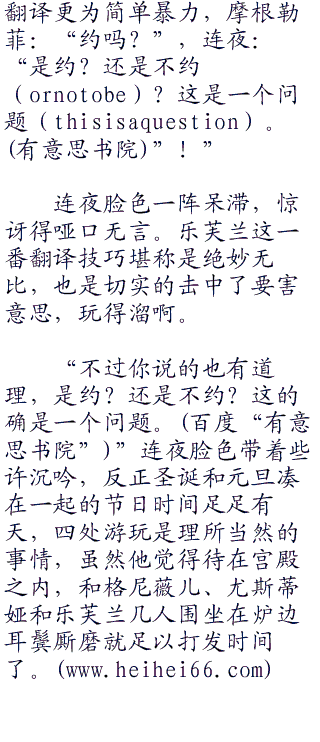 翻译更为简单暴力，摩根勒
菲：“约吗？”，连夜：
“是约？还是不约
（ornotobe）？这是一个问
题（thisisaquestion）。
(有意思书院)”！”
连夜脸色一阵呆滞，惊
讶得哑口无言。乐芙兰这一
番翻译技巧堪称是绝妙无
比，也是切实的击中了要害
意思，玩得溜啊。
“不过你说的也有道
理，是约？还是不约？这的
确是一个问题。(百度“有意
思书院”)”连夜脸色带着些
许沉吟，反正圣诞和元旦凑
在一起的节日时间足足有一
天，四处游玩是理所当然的
事情，虽然他觉得待在宫殿
之内，和格尼薇儿、尤斯蒂
娅和乐芙兰几人围坐在炉边
耳鬓厮磨就足以打发时间
了。(www.heihei66.com)